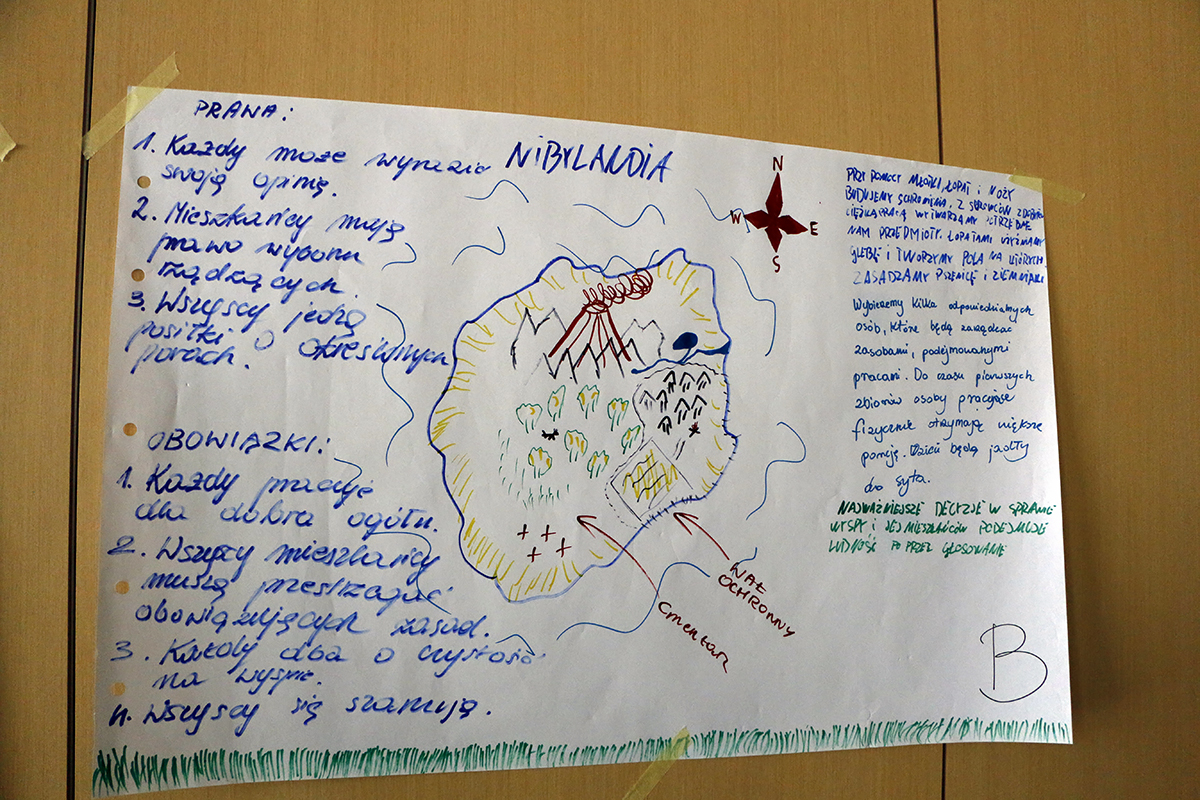 PRAWA:
1. Każdy może wyrazić
swoją opinię.
2. Mieszkańcy mają
prawo wyboru
rządzących.
3. Wszyscy jedzą
posiłki o określonych
porach.
OBOWIĄZKI:
1. Każdy pracuje
dla dobra ogółu.
2. Wszyscy mieszkańcy
muszą przestrzegać
obowiązujących zasad.
3. Każdy dba o czystość
na wyspie.
4. Wszyscy się szanują.
NIBYLANDIA
N
W
E
S
WAŁ
OCHRONNY
Cmentarz
PRZY POMOCY MŁOTKI, ŁOPAT i NOŻY
BUDUJEMY SCHRONIENIA, Z SUROWCÓW ZDOBYTYCH
CIĘŻKĄ PRACĄ WYTWARZAMY POTRZEBNE
NAM PRZEDMIOTY. ŁOPATAMI UŻYŹNIAMY
GLEBĘ i TWORZYMY POLA NA KTÓRYCH
ZASADZAMY PSZENICĘ i ZIEMNIAKI
Wybierzemy kilka odpowiedzialnych
osób, które będą zarządzać
zasobami, podejmowanymi
pracami. Do czasu pierwszych
zbiorów osoby pracujące
fizycznie otrzymają większe
porcje. Dzieci będą jadły
do syta.
NAJWAŻNIEJSZE DECYZJE W SPRAWIE
WYSPY i JEJ MIESZKAŃCÓW PODEJMUJE
LUDNOŚĆ POPRZEZ GŁOSOWANIE
B